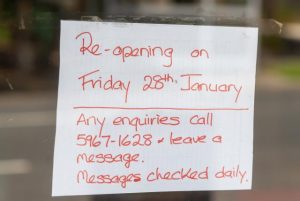 Re-opening on
Friday 28th, January
Any enquiries call
5967-1628 & leave a
message.
Messages checked daily.